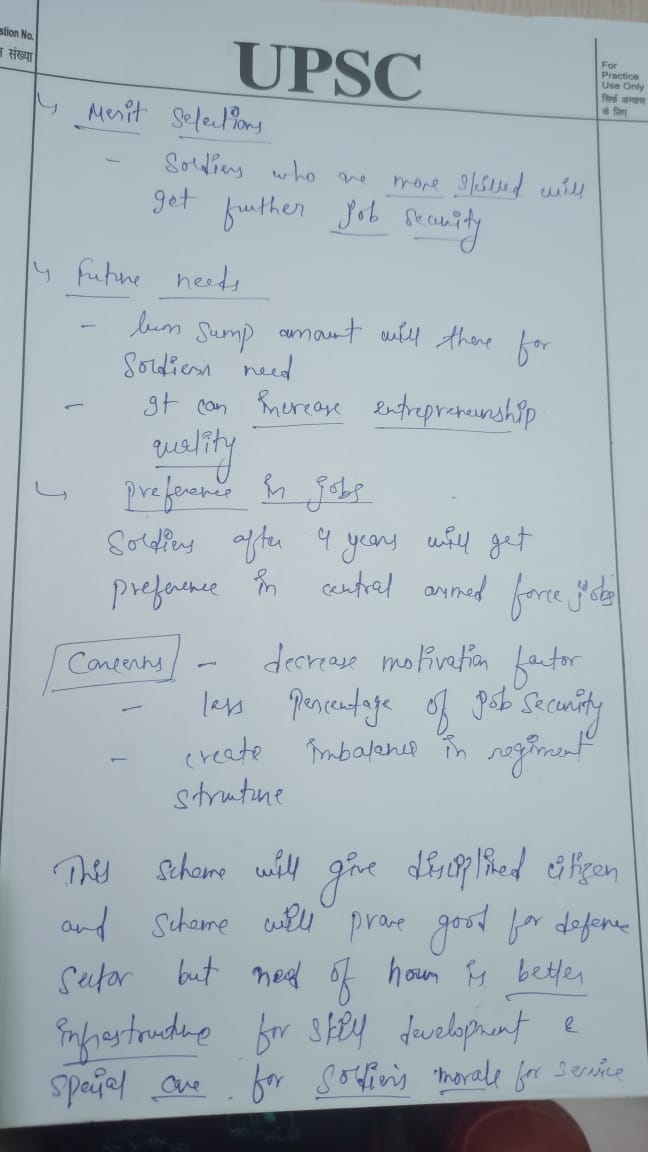 stion No.
संख्या
UPSC
For
Practice
Use Only
सिर्फ अभ्यास
के लिए
↳ Merit Selections
- Soldiers who are more skilled will
get further Job Security
↳ Future needs
- lum sump amount will there for
Soldiers need
- It can increase entrepreneurship
quality
↳ preference in jobs
Soldiers after 4 years will get
preference in central armed force jobs
Concerns - decrease motivation factor
- less Percentage of Job Security
- create imbalance in regiment
structure
This scheme will give disciplined citizen
and scheme will prove good for defence
sector but need of hour is better
infrastructure for skill development &
special care for Soldiers morale for service